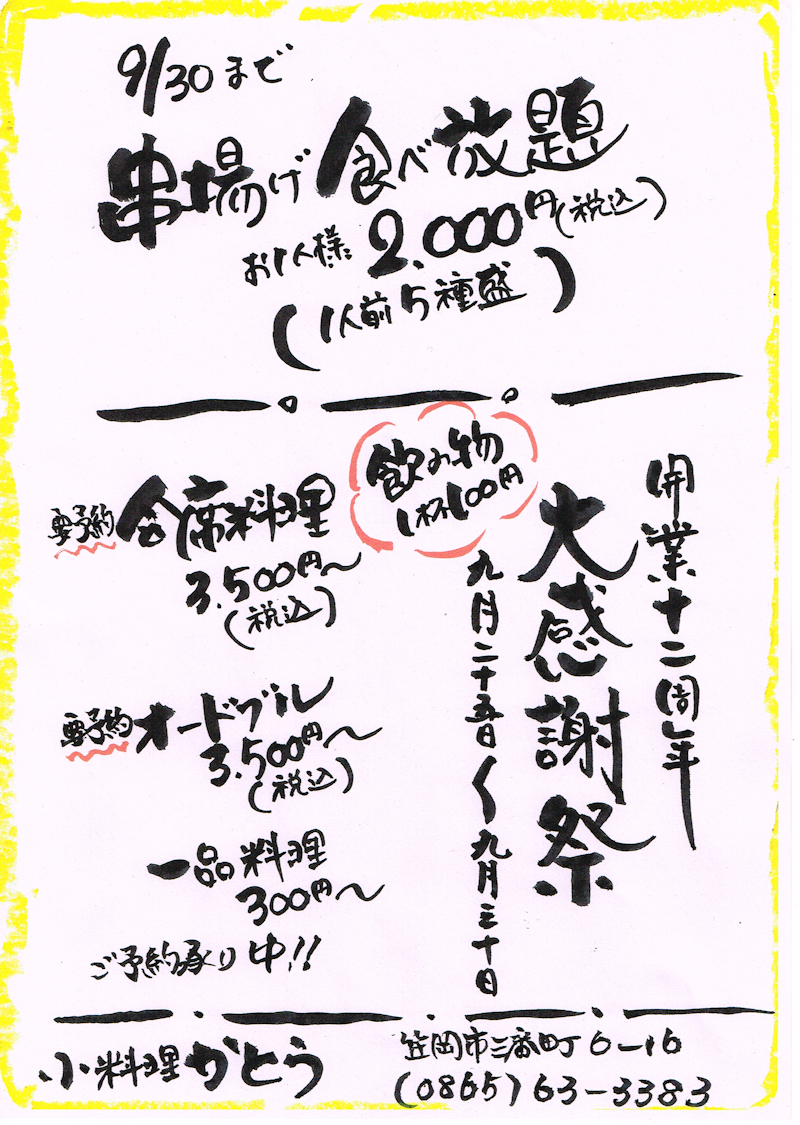 9/30まで
串揚げ食べ放題
お1人様 2.000円(税込)
(1人前5種盛)
開業十二周年
大感謝祭
九月二十五日〜九月三十日
飲み物
1杯100円
要予約 会席料理
3.500円〜
(税込)
要予約 オードブル
3.500円〜
(税込)
一品料理
300円〜
ご予約承り中!!
小料理 かとう
笠岡市三番町6-16
(0865)63-3383